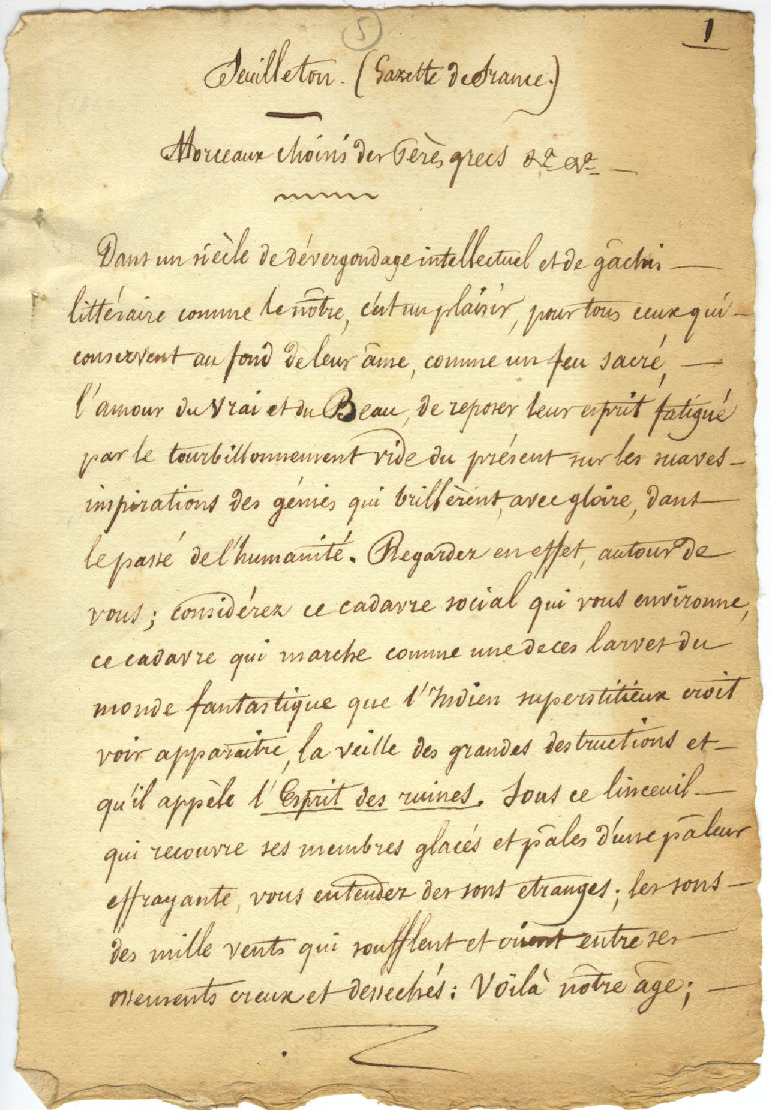 5
1
Feuilleton. (Gazette de France.)
Morceaux choisis des Pères grecs &a &a
Dans un siècle de dévergondage intellectuel et de gâchis
littéraire comme le nôtre, c'est un plaisir, pour tous ceux qui
conservent au fond de leur âme, comme un feu sacré,
l'amour du Vrai et du Beau, de reposer leur esprit fatigué
par le tourbillonnement vide du présent sur les suaves
inspirations des génies qui brillèrent, avec gloire, dans
le passé de l'humanité. Regardez en effet, autour de
vous ; considérez ce cadavre social qui vous environne,
ce cadavre qui marche comme une de ces larves du
monde fantastique que l'Indien superstitieux croit
voir apparaître, la veille des grandes destructions et
qu'il appèle l'Esprit des ruines. Sous ce linceuil
qui recouvre ses membres glacés et pâles d'une pâleur
effrayante, vous entendez des sons etranges ; les sons
des mille vents qui soufflent et crient entre ses
ossements creux et dessechés : Voilà nôtre âge ;